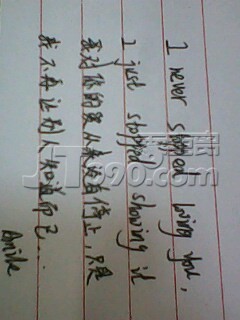 I never stopped loving you,
I just stopped showing it
我对你的爱从来没有停止，只是
我不再让别人知道而已...
Smile
JT390.com